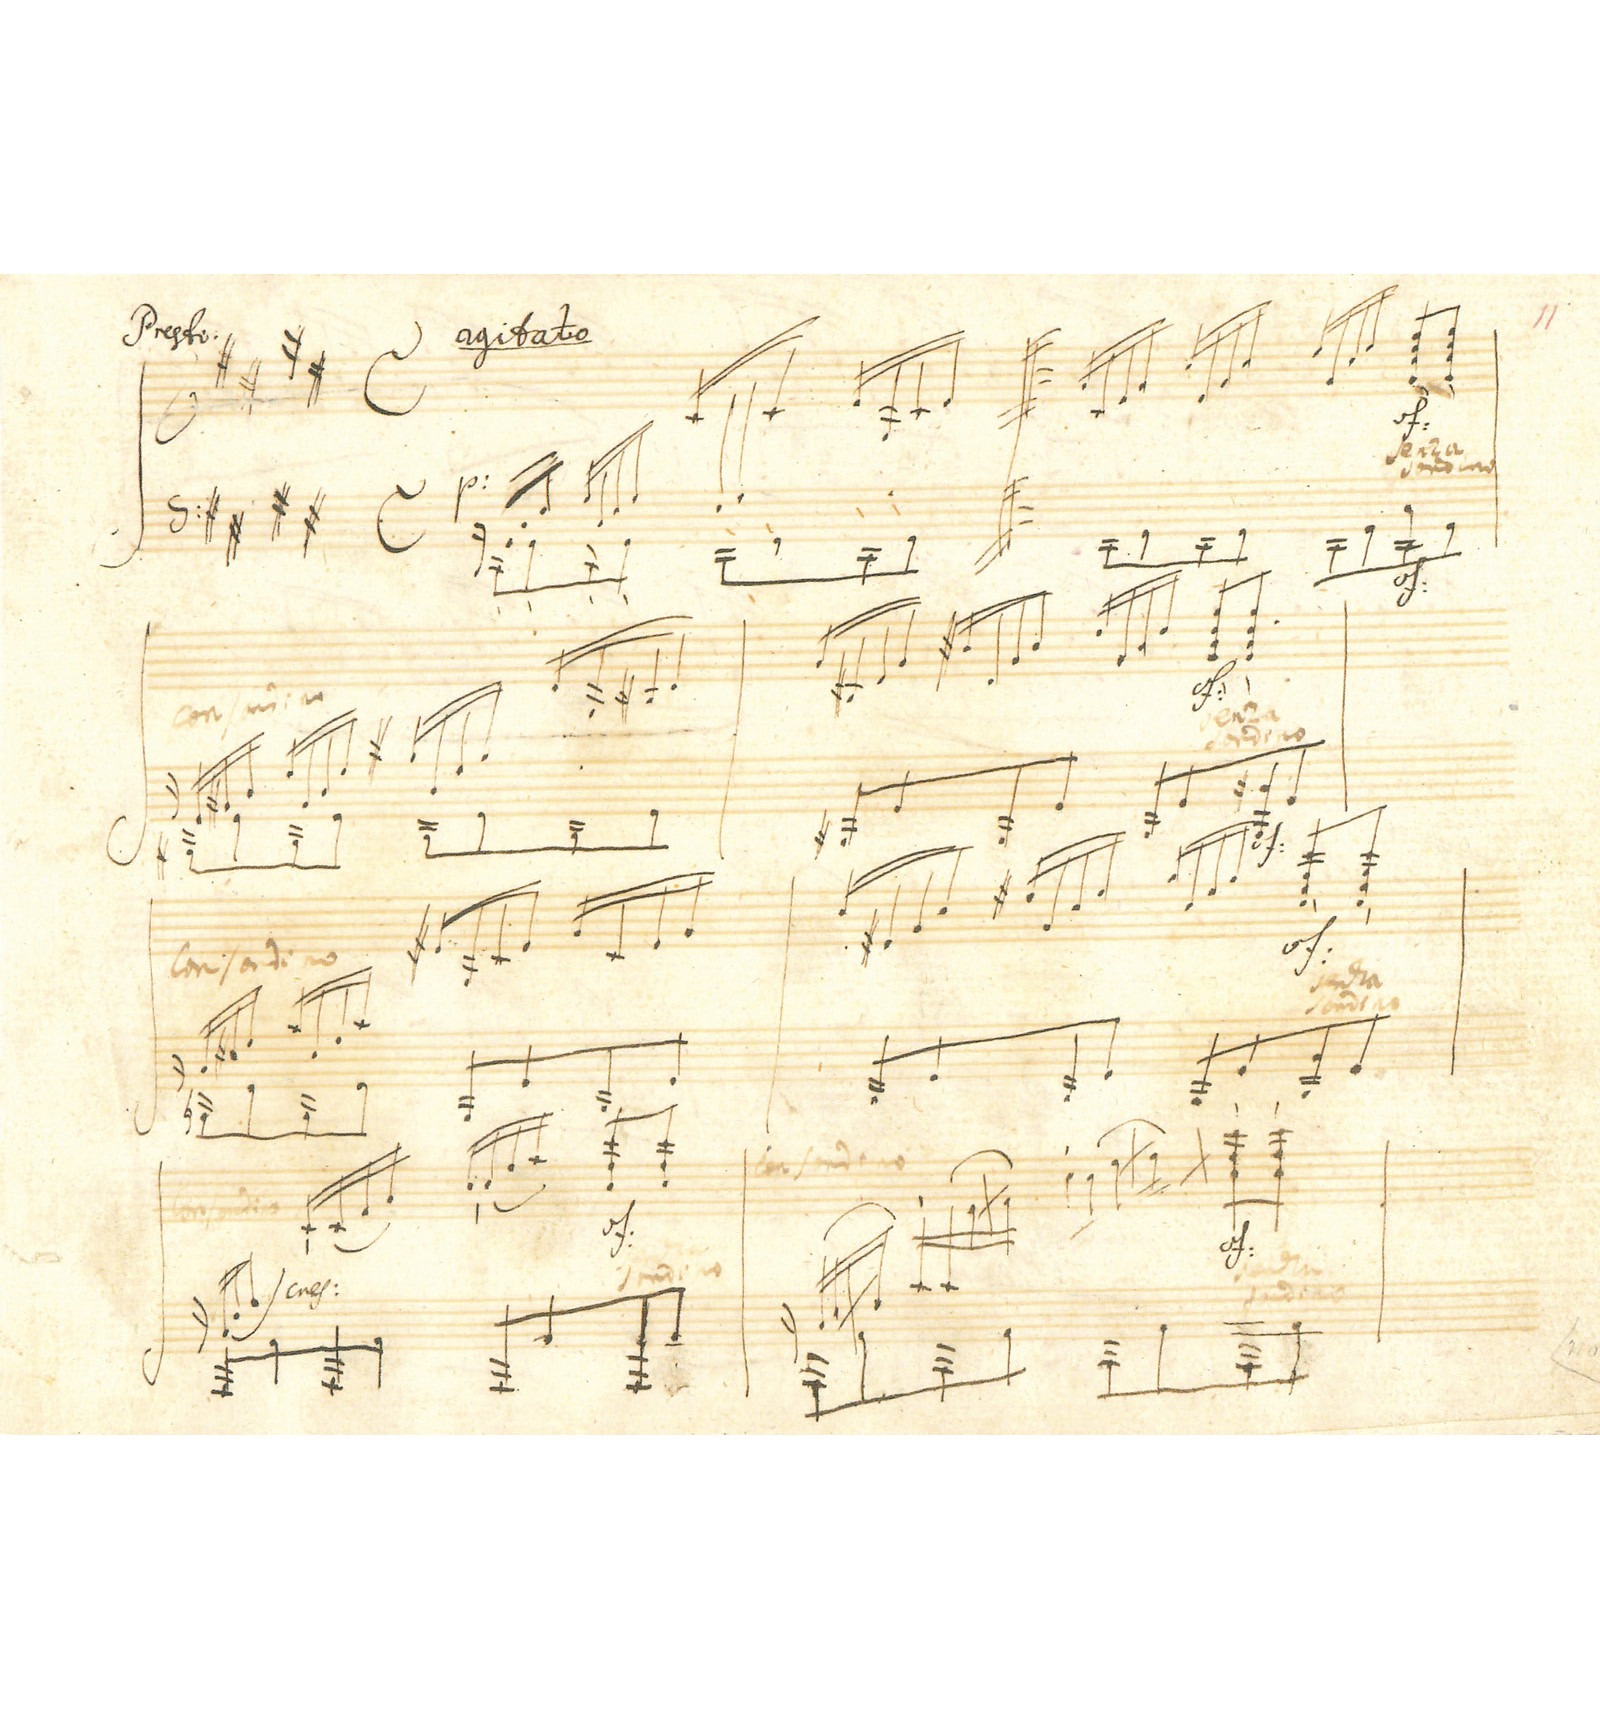 Presto. agitato
11
p:
sf:
senza
sordino
sf:
con sordino
sf:
senza
sordino
sf:
Con sordino
sf:
senza
sordino
Con sordino
con sordino
sf:
cresc:
sordino
sf:
senza
sordino